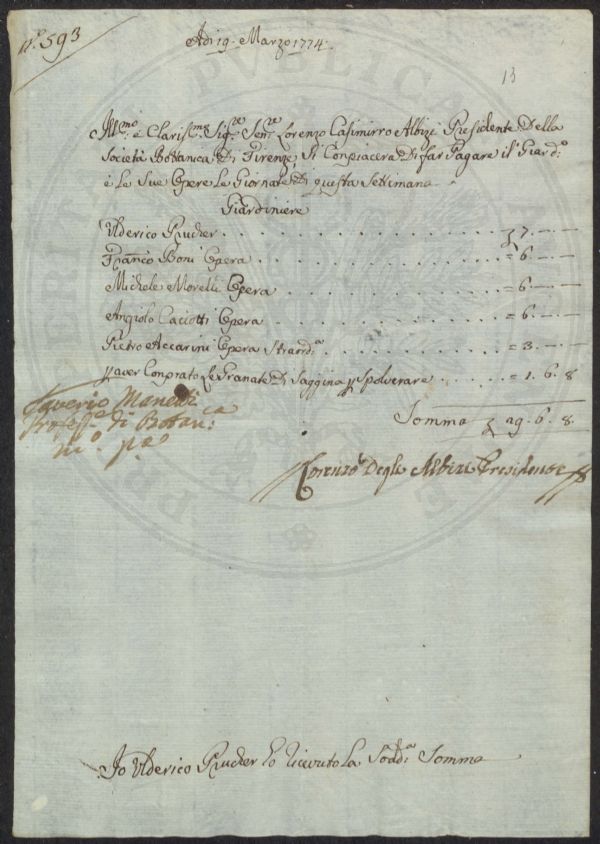 N.º 593
Adi 19. Marzo 1774.
13
Ill.mo e Claris.mo Sig.re Sen.re Lorenzo Casimirro Albizi Presidente Della
Società Bottanica, Di Firenze, Si Conpiacera Di far Pagare il Giard.e
e Le Sue Opere Le Giornate Di questa Settimana
Giardiniere
Ulderico Prucher . . . . . . . . . . £ 7. — —
Franco Boni Opera . . . . . . . . . . = 6. — —
Michele Morelli Opera . . . . . . . . . . = 6 — —
Angiolo Caciotti Opera . . . . . . . . . . = 6. — —
Pietro Accarini Opera Straord.a . . . . . . . . = 3. — —
p aver Conprato Le Granate Di Saggina p Spolverare . . . . = 1. 6. 8
Somma £ 29. 6. 8.
Saverio Manetti
Profess.e di Botan.ca
m.o p.a
Lorenzo Degli Albizi Presidente
Io Ulderico Prucher ho riceuto La Sodd.a Somma
PUBLICA